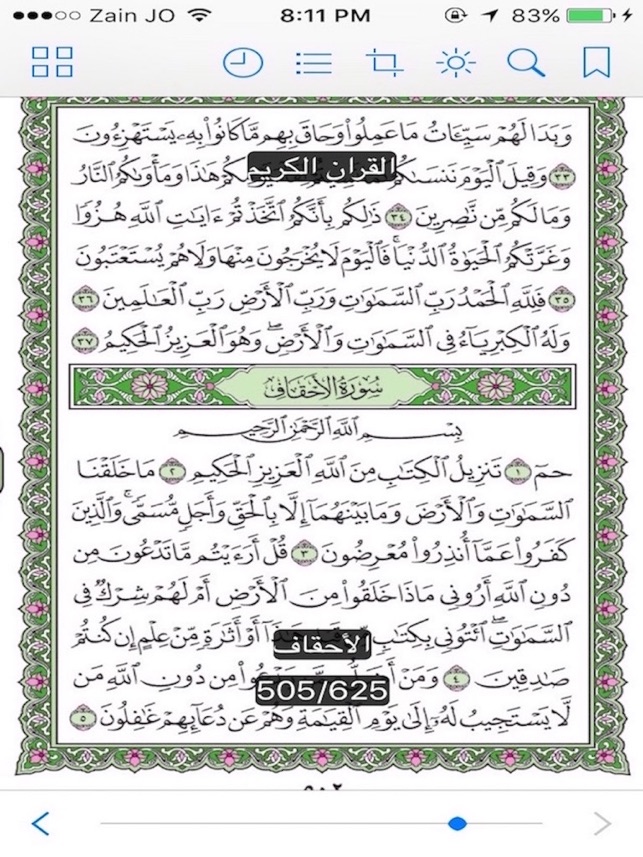 Zain JO 8:11 PM 83%
وَبَدَا لَهُمْ سَيِّـَٔاتُ مَا عَمِلُوا۟ وَحَاقَ بِهِم مَّا كَانُوا۟ بِهِۦ يَسْتَهْزِءُونَ
٣٣ وَقِيلَ ٱلْيَوْمَ نَنسَىٰكُمْ هَٰذَا وَمَأْوَىٰكُمُ ٱلنَّارُ
القران الكريم
وَمَا لَكُم مِّن نَّٰصِرِينَ ٣٤ ذَٰلِكُم بِأَنَّكُمُ ٱتَّخَذْتُمْ ءَايَٰتِ ٱللَّهِ هُزُوًا
وَغَرَّتْكُمُ ٱلْحَيَوٰةُ ٱلدُّنْيَا ۚ فَٱلْيَوْمَ لَا يُخْرَجُونَ مِنْهَا وَلَا هُمْ يُسْتَعْتَبُونَ
٣٥ فَلِلَّهِ ٱلْحَمْدُ رَبِّ ٱلسَّمَٰوَٰتِ وَرَبِّ ٱلْأَرْضِ رَبِّ ٱلْعَٰلَمِينَ ٣٦
وَلَهُ ٱلْكِبْرِيَآءُ فِى ٱلسَّمَٰوَٰتِ وَٱلْأَرْضِ ۖ وَهُوَ ٱلْعَزِيزُ ٱلْحَكِيمُ ٣٧
سُورَةُ الأَحْقَافِ
بِسْمِ ٱللَّهِ ٱلرَّحْمَٰنِ ٱلرَّحِيمِ
حمٓ ١ تَنزِيلُ ٱلْكِتَٰبِ مِنَ ٱللَّهِ ٱلْعَزِيزِ ٱلْحَكِيمِ ٢ مَا خَلَقْنَا
ٱلسَّمَٰوَٰتِ وَٱلْأَرْضَ وَمَا بَيْنَهُمَآ إِلَّا بِٱلْحَقِّ وَأَجَلٍ مُّسَمًّى ۚ وَٱلَّذِينَ
كَفَرُوا۟ عَمَّآ أُنذِرُوا۟ مُعْرِضُونَ ٣ قُلْ أَرَءَيْتُم مَّا تَدْعُونَ مِن
دُونِ ٱللَّهِ أَرُونِى مَاذَا خَلَقُوا۟ مِنَ ٱلْأَرْضِ أَمْ لَهُمْ شِرْكٌ فِى
ٱلسَّمَٰوَٰتِ ۖ ٱئْتُونِى بِكِتَٰبٍ أَوْ أَثَٰرَةٍ مِّنْ عِلْمٍ إِن كُنتُمْ
الأحقاف
صَٰدِقِينَ ٤ وَمَنْ مِن دُونِ ٱللَّهِ مَن
505/625
لَّا يَسْتَجِيبُ لَهُۥٓ إِلَىٰ يَوْمِ ٱلْقِيَٰمَةِ وَهُمْ عَن دُعَآئِهِمْ غَٰفِلُونَ ٥
٥٠٢